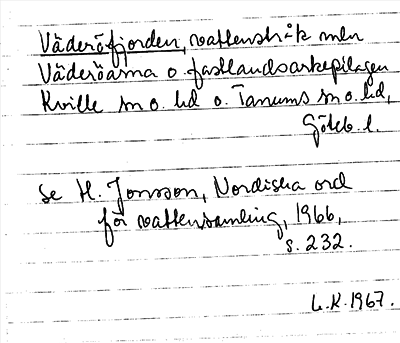 Väderöfjorden, vattenstråk mln
Väderöarna o. fastlandsarkipelagen
Kville sn o. hd o. Tanums sn o. hd,
Göteb. l.
Se H. Jonsson, Nordiska ord
för vattensamling, 1966,
s. 232.
L.K. 1967.